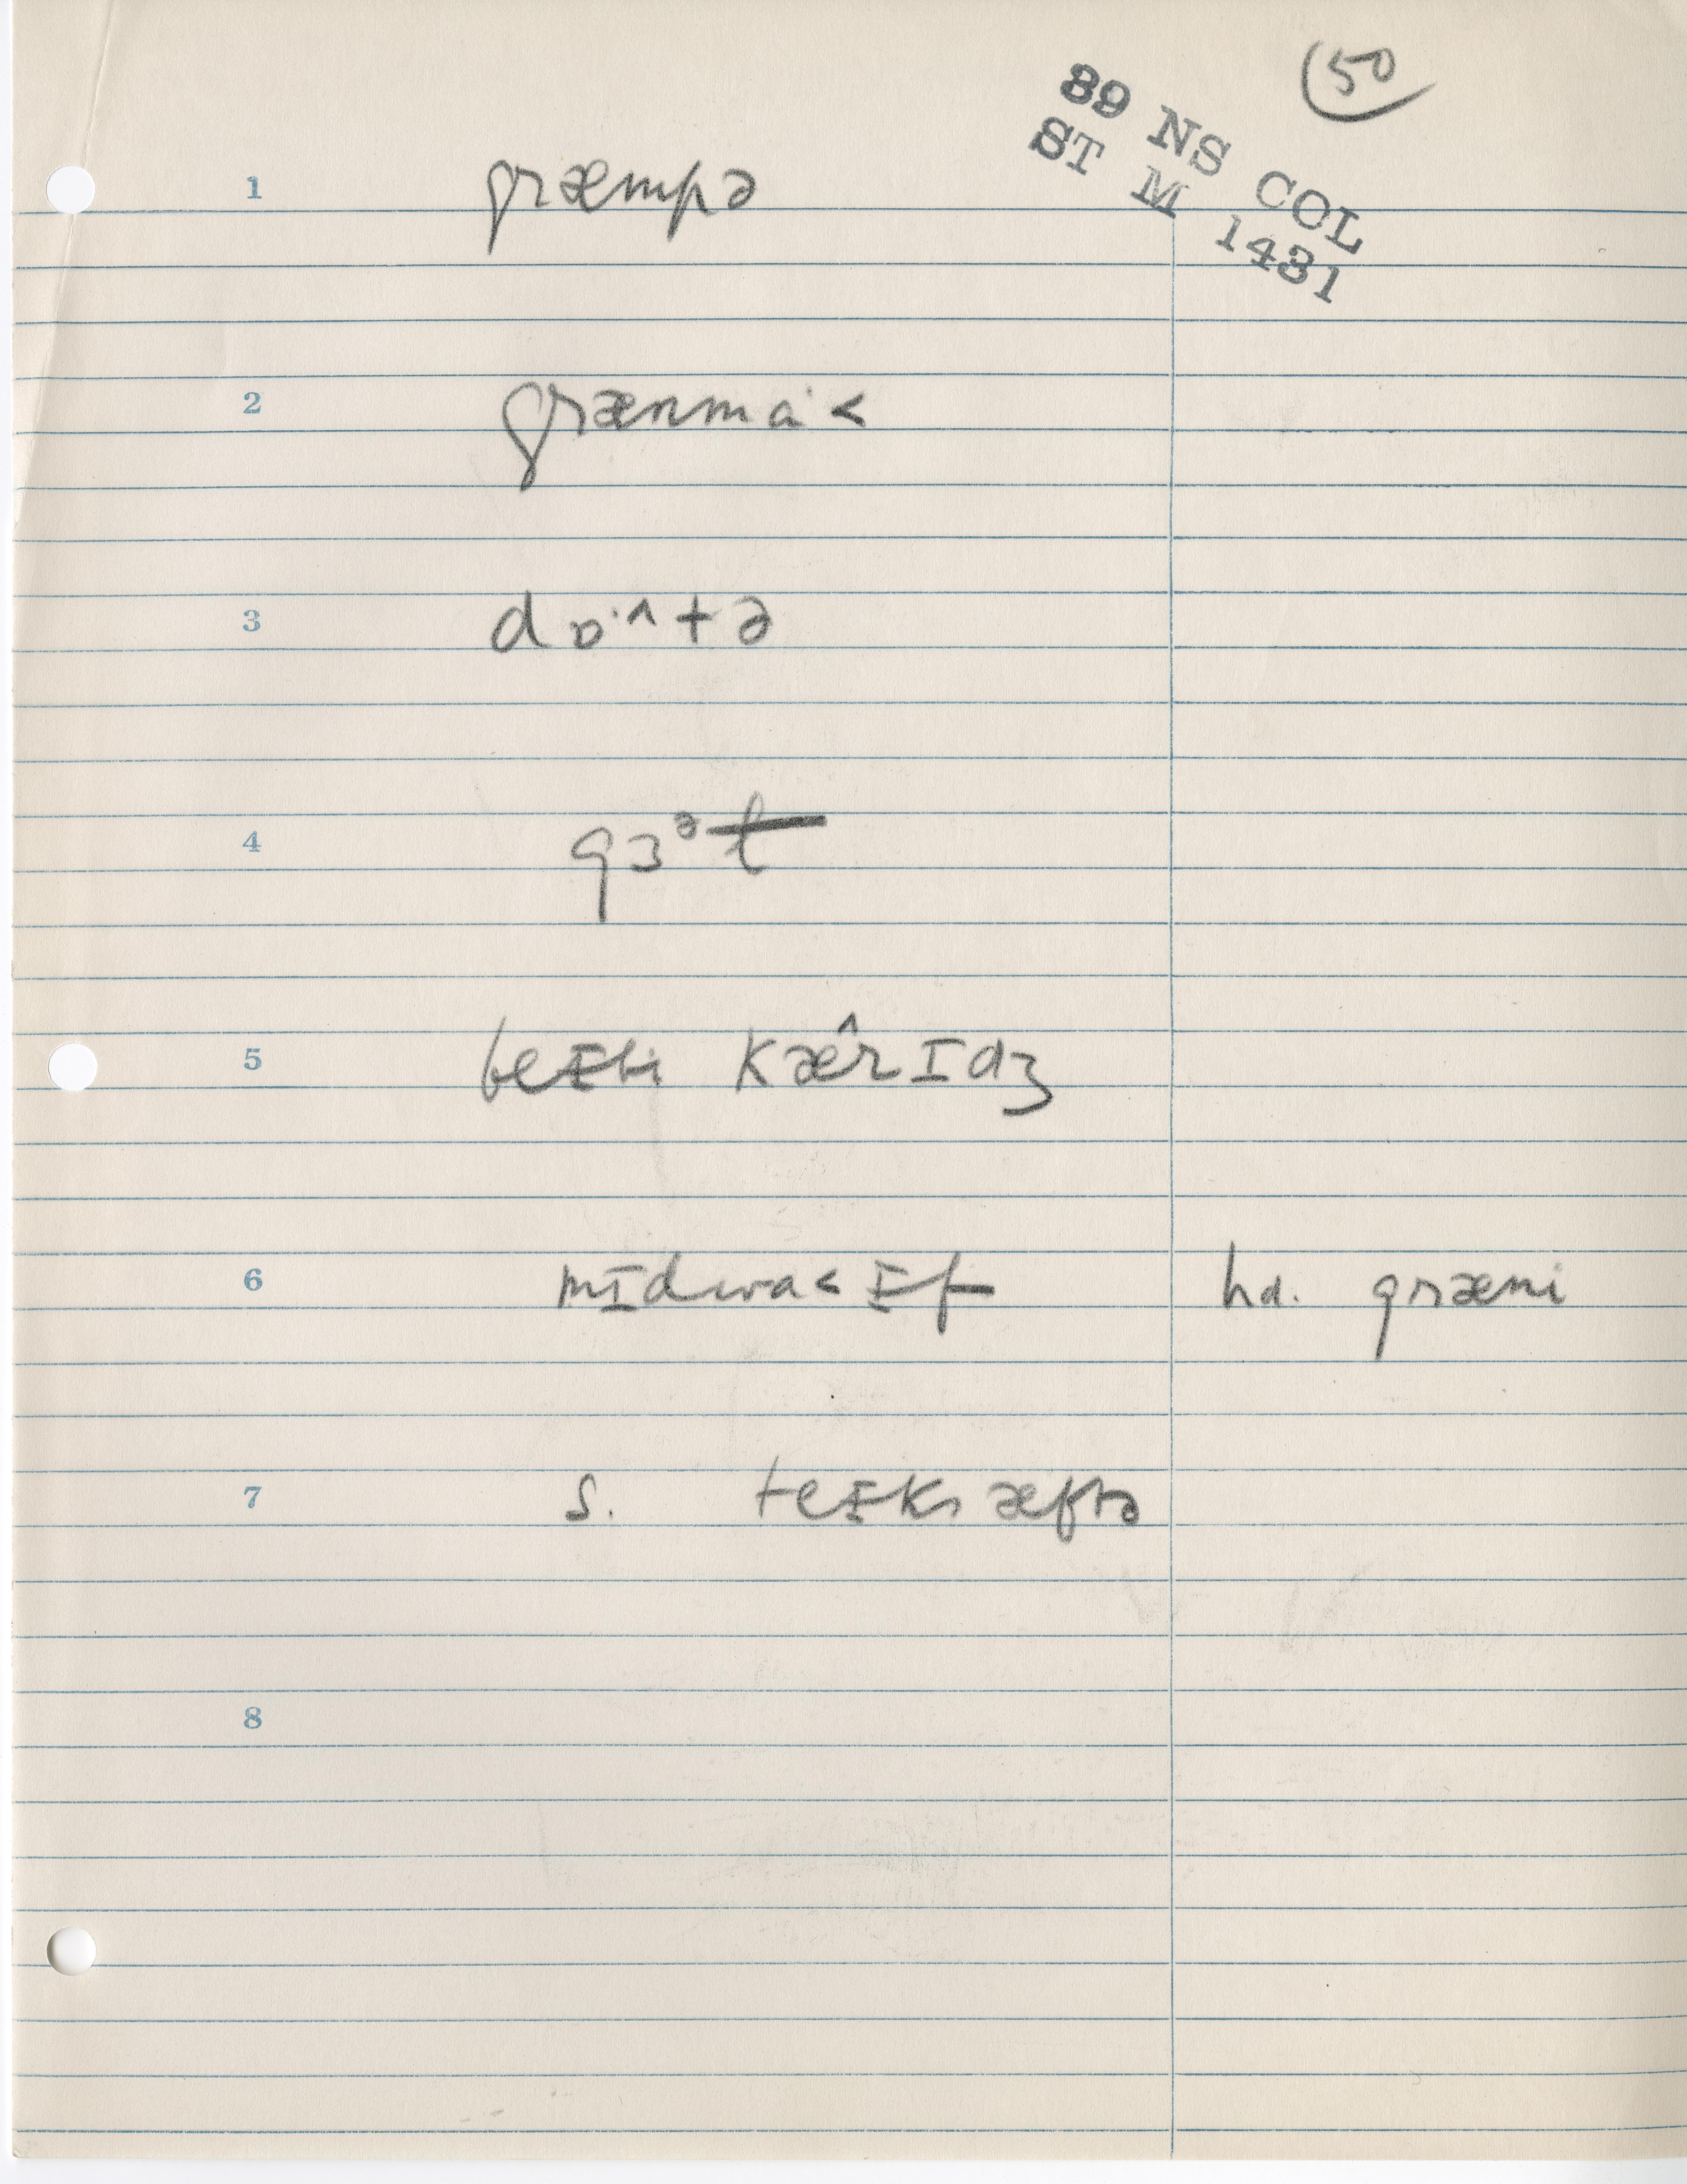 50
89 NS COL
ST M 1431
1 græmpə
2 grænmaˑ<
3 dɒˑ^tə
4 gɜᵊɫ
5 beɪbi kæ^rɪdʒ
6 mɪdwa<ɪf hd. græni
7 s. teɪks æftə
8